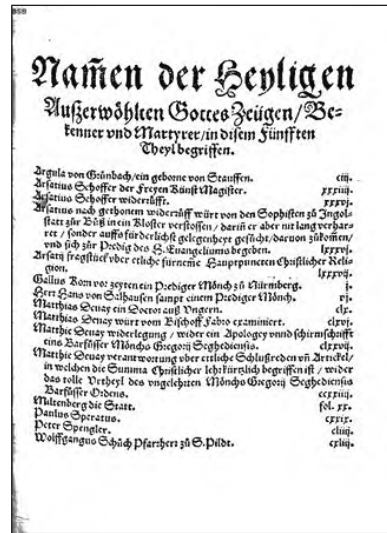 Nam̃en der Heyligen
Außerwöhlten Gottes Zeügen/Be-
kenner vnd Martyrer/in disem Fünfften
Theyl begriffen.
Argula von Grünbach/ein geborne von Stauffen. ciiij.
Arsatius Schoffer der Freyen Künst Magister. xxxiiij.
Arsatius Schoffer widerrüfft. xxxvj.
Arsatius nach gethonem widerrüff würt von den Sophisten zů Ingol-
statt zůr Bůß in ein Kloster verstossen / darin er aber nit lang verhar-
ret / sonder auffs fürderlichst gelegenheyt gesůcht/daruon zůkom̃en/
vnd sich zůr Predig des H. Euangeliums begeben. lxxxvj.
Arsatij fragstuck vber etliche fürneme Hauptpuncten Christlicher Reli-
gion. lxxxvij.
Gallus Korn vor zeyten ein Prediger Mönch zů Nürmberg. j.
Herr Hans von Salhausen sampt einem Prediger Mönch. vj.
Matthias Deuay ein Doctor auß Vngern. clx.
Matthias Deuay würt vom Bischoff Fabro examiniert. clxvj.
Matthie Deuay widerlegung / wider ein Apology vnnd schirmschrifft
eins Barfüsser Mönchs Gregorij Seghediensis. clxvij.
Matthie Deuay verantwortung vber ettliche Schlußreden vñ Artickel/
in welchen die Summa Christlicher lehr kürtzlich begriffen ist / wider
das tolle Vrtheyl des vngelehrten Mönchs Gregorij Seghediensis
Barfüsser Ordens.
Miltenberg die Statt. fol. xx.
Paulus Speratus. cxxix.
Peter Spengler. cliij.
Wolffgangus Schůch Pfarrherr zů S. Pildt. cxliij.